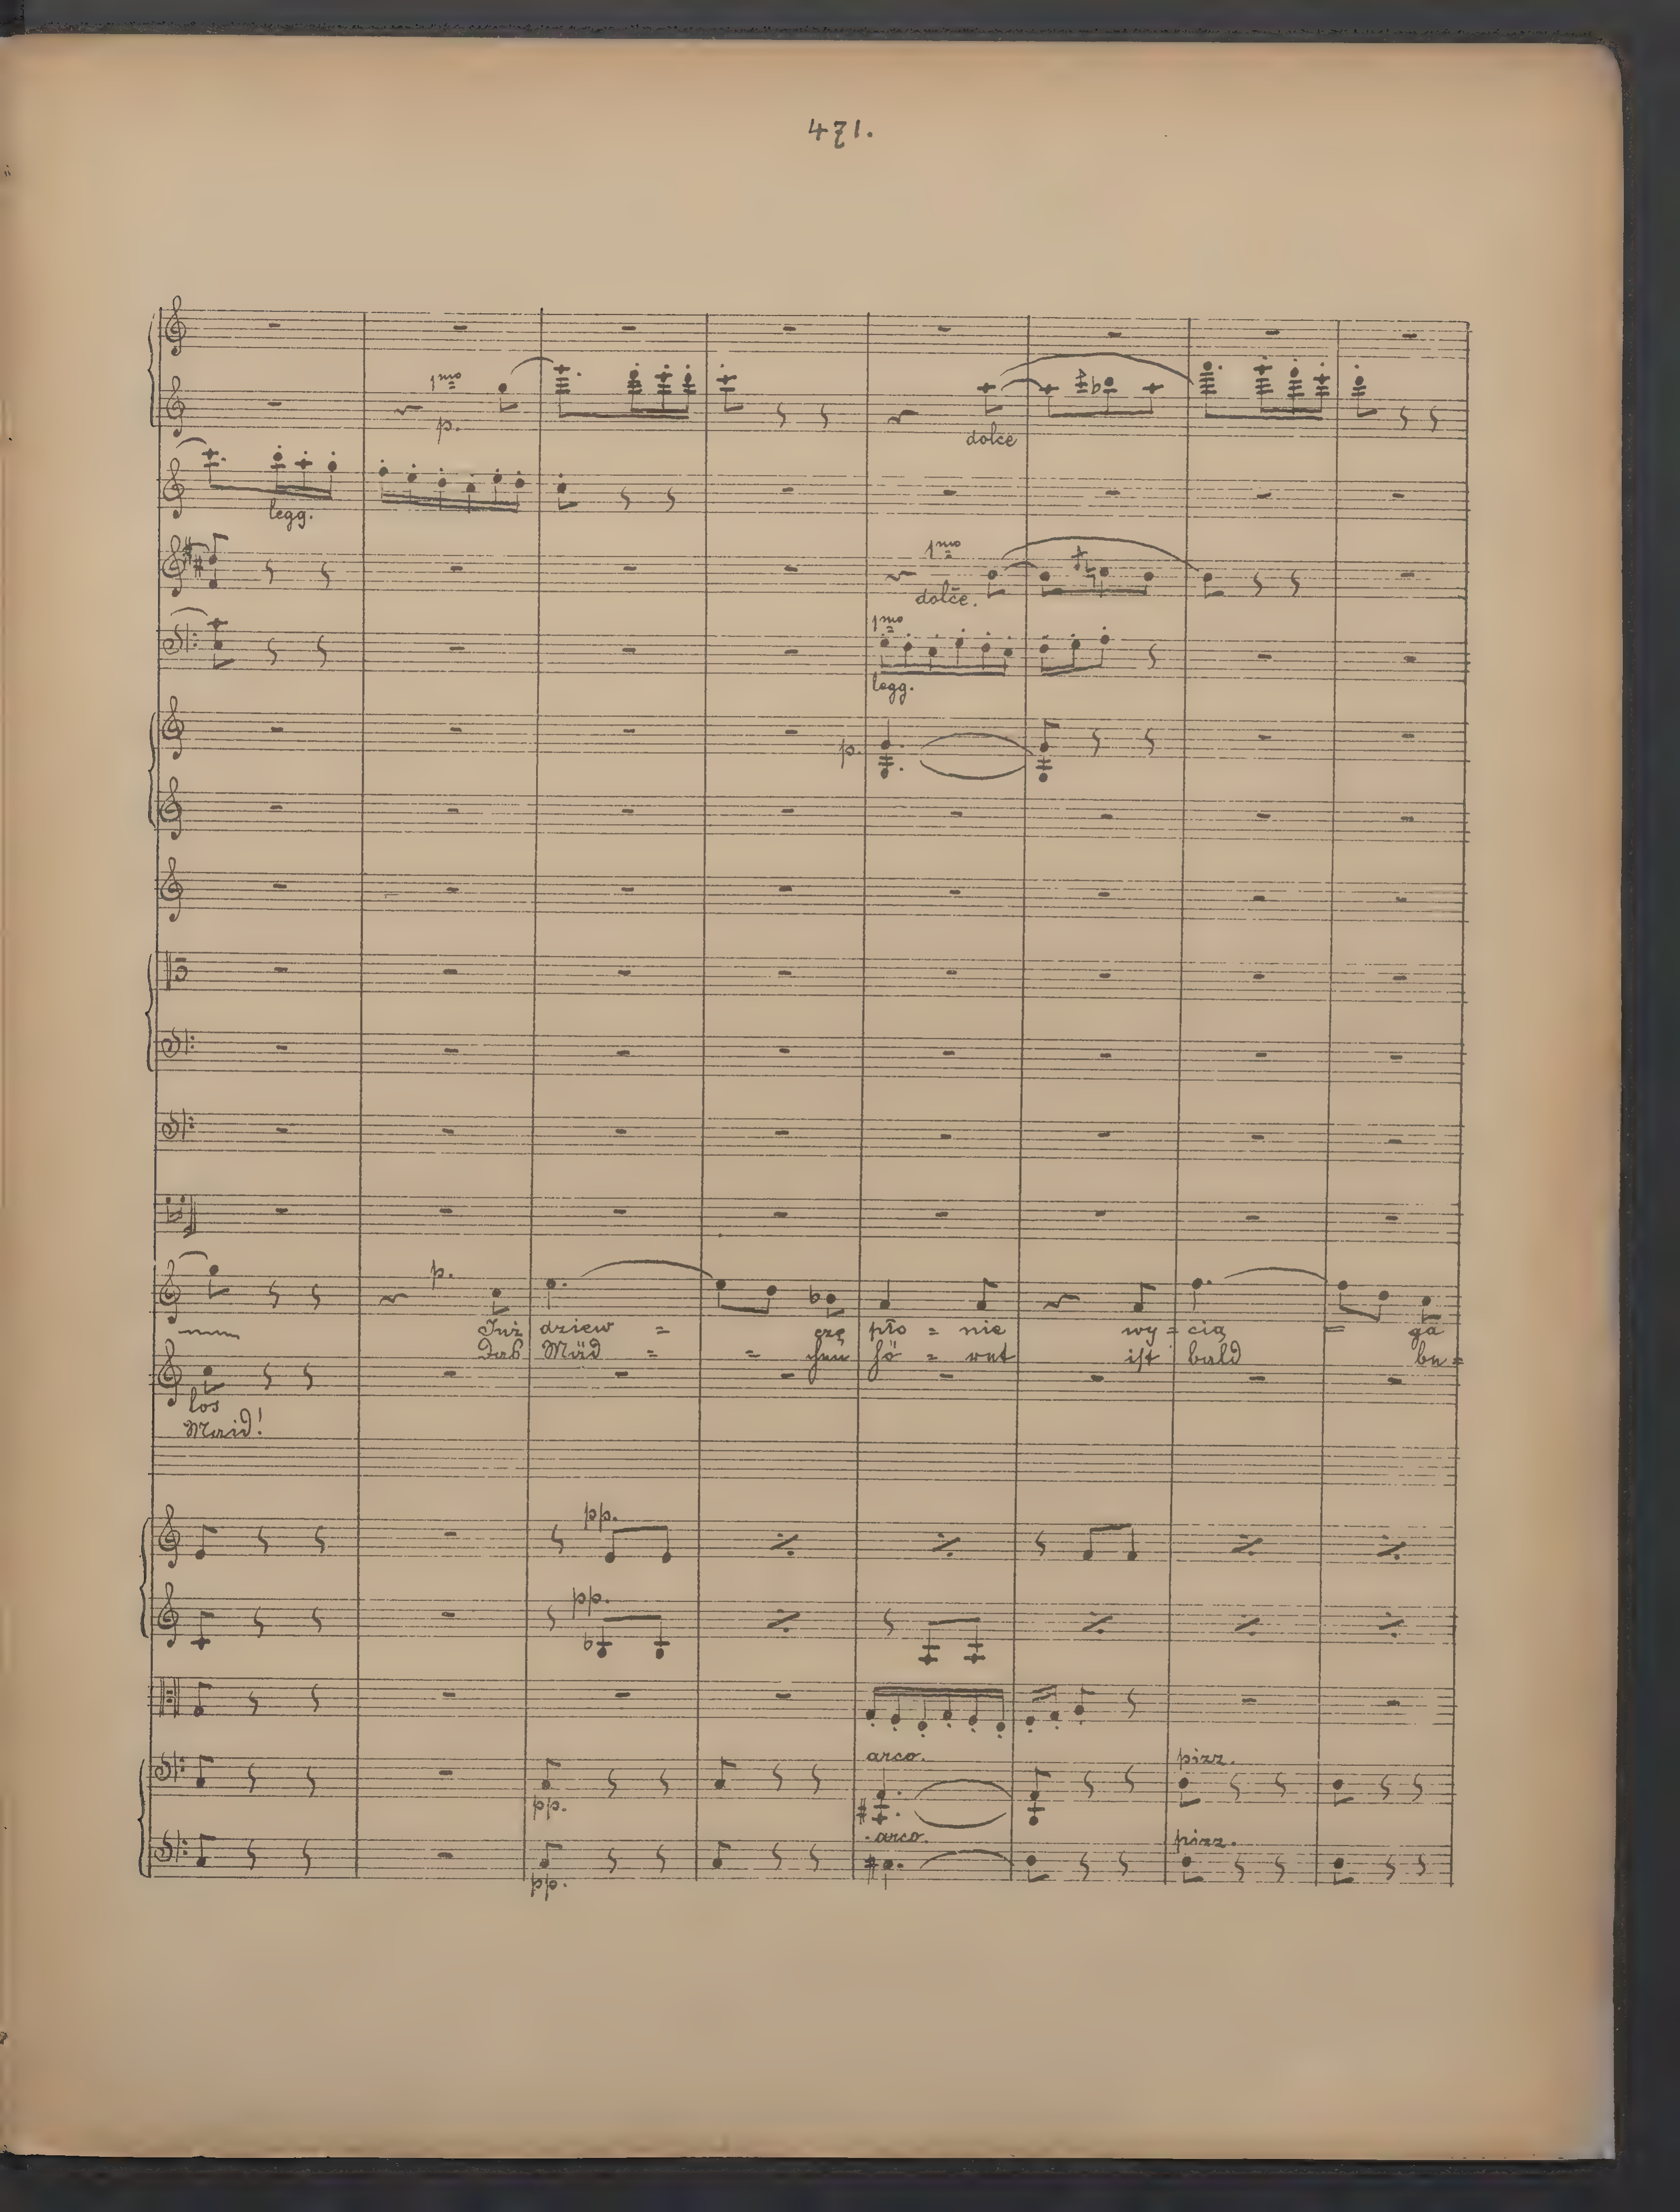 471.
1mo
p.
dolce
legg.
1mo
dolce.
1mo
legg.
p.
p.
Już dziew = czę pło = nie wy = cią = ga
Das Mäd = = chen hö = ret ist bald be =
los
Maid!
pp.
pp.
arco. pizz.
pp.
arco. pizz.
pp.